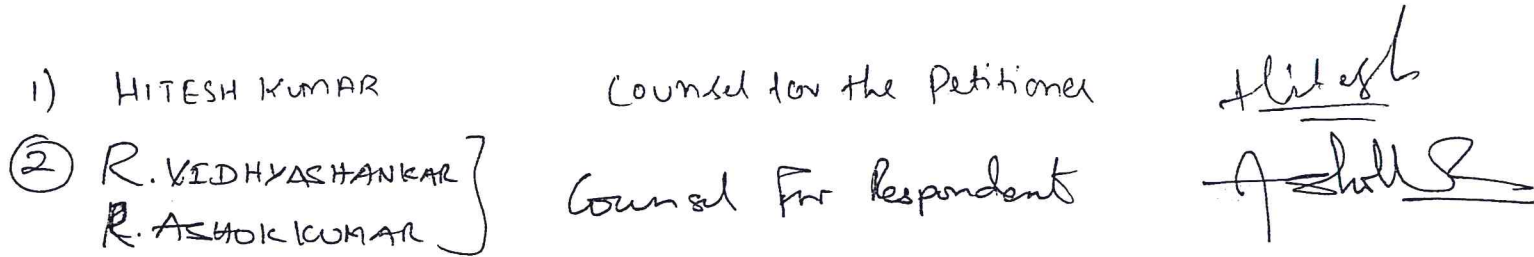 1) HITESH KUMAR Counsel for the Petitioner Hitesh
② R. VIDHYASHANKAR
R. ASHOK KUMAR Counsel For Respondent Ashok